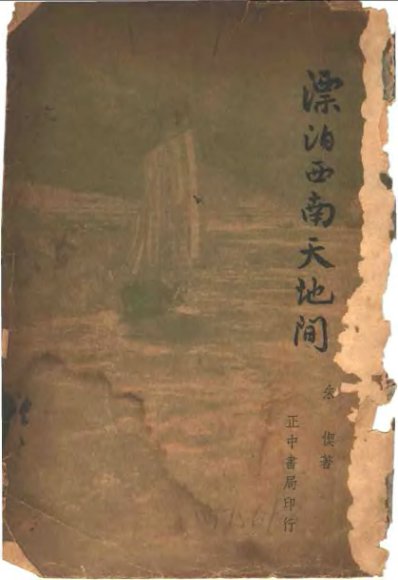 漂泊西南天地間
朱偰著
正中書局印行